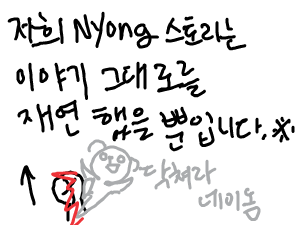 저희 Nyong 스토리는
이야기 그대로를
재연 했을 뿐입니다.※
↑
닥쳐라
네이놈